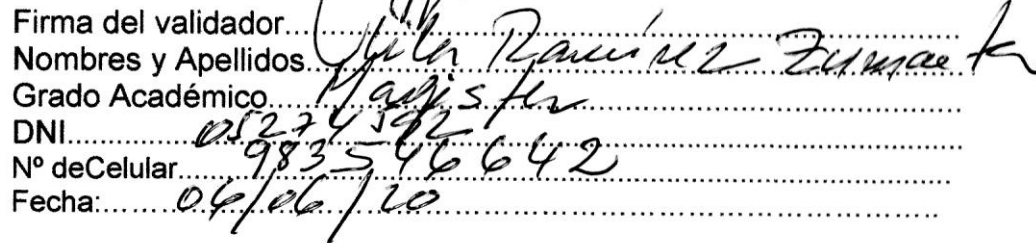 Firma del validador
Nombres y Apellidos Ramírez Zumaeta
Grado Académico Magister
DNI 05274592
Nº deCelular 983546642
Fecha: 06/06/20